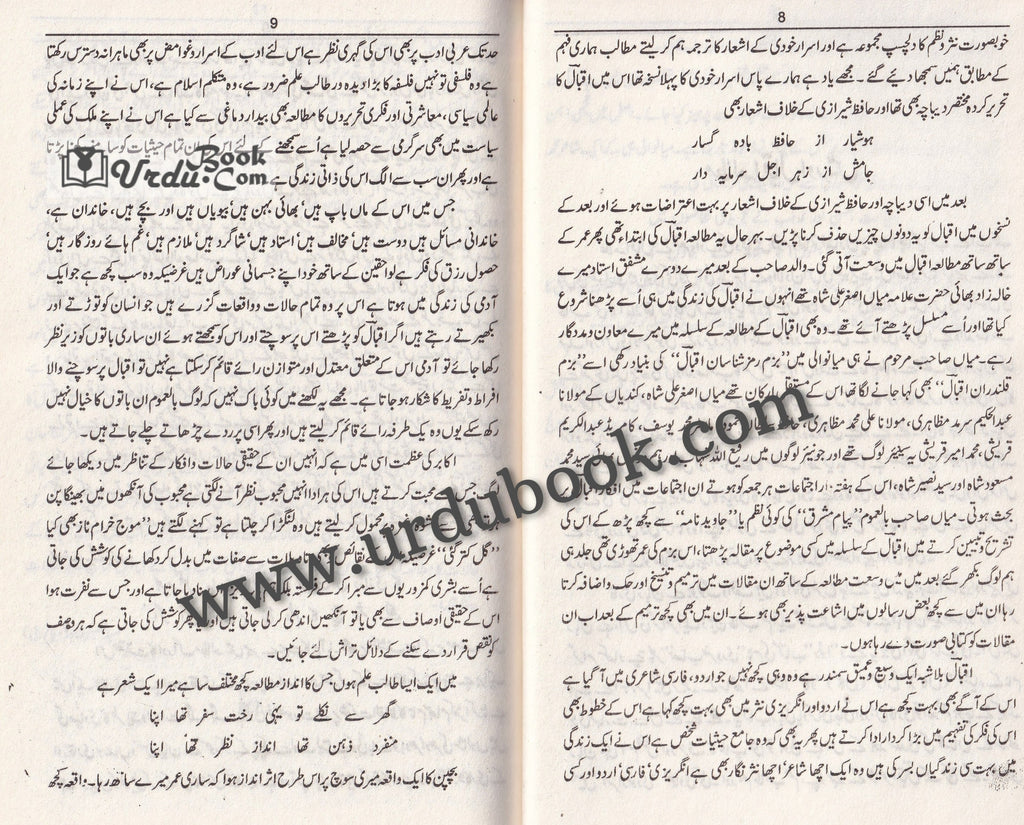 8
خوبصورت نثر و نظم کا دلچسپ مجموعہ ہے اور اسرار خودی کے اشعار کا ترجمہ ہم کر لیتے مطالب ہماری فہم
کے مطابق ہمیں سمجھا دیئے گئے ۔ مجھے یاد ہے ہمارے پاس اسرار خودی کا پہلا نسخہ تھا اس میں اقبالؔ کا
تحریر کردہ مختصر دیباچہ بھی تھا اور حافظ شیرازی کے خلاف اشعار بھی
ہوشیار از حافظ بادہ گسار
جامش از زہر اجل سرمایہ دار
بعد میں اسی دیباچہ اور حافظ شیرازی کے خلاف اشعار پر بہت اعتراضات ہوئے اور بعد کے
نسخوں میں اقبال کو یہ دونوں چیزیں حذف کرنا پڑیں۔ بہرحال یہ مطالعہ اقبال کی ابتداء تھی پھر عمر کے
ساتھ ساتھ مطالعہ اقبال میں وسعت آتی گئی۔ والد صاحب کے بعد میرے دوسرے مشفق استاد میرے
خالہ زاد بھائی حضرت علامہ میاں اصغر علی شاہ تھے انہوں نے اقبالؔ کی زندگی میں ہی اُسے پڑھنا شروع
کیا تھا اور اُسے مسلسل پڑھتے آئے تھے۔ وہ بھی اقبالؔ کے مطالعہ کے سلسلہ میں میرے معاون و مددگار
رہے۔ میاں صاحب مرحوم نے ہی میانوالی میں ’’بزم رمز شناسان اقبال‘‘ کی بنیاد رکھی اسے ’’بزم
قلندران اقبالؔ‘‘ بھی کہا جانے لگا تھا اس کے مستقل ارکان تھے میاں اصغر علی شاہ، کندیاں کے مولانا
عبدالحکیم سرمد مظاہری، مولانا علی محمد مظاہری، محمد یوسف، کامریڈ عبدالکریم
قریشی، محمد امیر قریشی یہ سینیئر لوگ تھے اور جونیئر لوگوں میں رفیع اللہ شہاب سید محمد
مسعود شاہ اور سید نصیر شاہ، اس کے ہفتہ وار اجتماعات ہر جمعہ کو ہوتے ان اجتماعات میں افکار اقبال پر
بحث ہوتی۔ میاں صاحب بالعموم ’’پیام مشرق‘‘ کی کوئی نظم یا ’’جاوید نامہ‘‘ سے کچھ پڑھ کے اس کی
تشریح و تبیین کرتے میں اقبالؔ کے سلسلہ میں کسی موضوع پر مقالہ پڑھتا، اس بزم کی عمر تھوڑی تھی جلد ہی
ہم لوگ بکھر گئے بعد میں میں وسعت مطالعہ کے ساتھ ان مقالات میں ترمیم و تنسیخ اور حک و اضافہ کرتا
رہا ان میں سے کچھ بعض رسالوں میں اشاعت پذیر بھی ہوئے۔ ان میں بھی کچھ ترمیم کے بعد اب ان
مقالات کو کتابی صورت دے رہا ہوں۔
اقبالؔ بلاشبہ ایک وسیع و عمیق سمندر ہے وہ وہی کچھ نہیں جو اردو، فارسی شاعری میں آ گیا ہے
اس کے آگے بھی بہت کچھ ہے اس نے اردو اور انگریزی نثر میں بھی بہت کچھ کہا ہے اس کے خطوط بھی
اس کی فکر کی تفہیم میں بڑا کردار ادا کرتے ہیں پھر یہ بھی کہ وہ جامع حیثیات شخص ہے اس نے ایک زندگی
میں بہت سی زندگیاں بسر کی ہیں وہ ایک اچھا شاعر‘ اچھا نثر نگار بھی ہے انگریزی‘ فارسی‘ اردو اور کسی
9
حد تک عربی ادب پر بھی اس کی گہری نظر ہے اس لئے ادب کے اسرار و غوامض پر بھی ماہرانہ دسترس رکھتا
ہے وہ فلسفی تو نہیں فلسفہ کا بڑا دیدہ ور طالب علم ضرور ہے، وہ متکلم اسلام ہے، اس نے اپنے زمانہ کی
عالمی سیاسی، معاشرتی اور فکری تحریروں کا مطالعہ بھی بیدار دماغی سے کیا ہے اس نے اپنے ملک کی عملی
سیاست میں بھی سرگرمی سے حصہ لیا ہے اُسے سمجھنے کے لئے اس تمام حیثیات کو سامنے رکھنا پڑتا
ہے اور پھر ان سب سے الگ اس کی ذاتی زندگی ہے
UrduBook.Com
جس میں اس کے ماں باپ ہیں‘ بھائی بہن ہیں‘ بیویاں ہیں اور بچے ہیں، خاندان ہے،
خاندانی مسائل ہیں دوست ہیں‘ مخالف ہیں‘ استاد ہیں‘ شاگرد ہیں‘ ملازم ہیں‘ غم ہائے روزگار ہیں‘
حصول رزق کی فکر ہے لواحقین کے ساتھ خود اپنے جسمانی عوارض ہیں غرضیکہ وہ سب کچھ ہے جو ایک
آدمی کی زندگی میں ہوتا ہے اس پر وہ تمام حالات و واقعات گزرے ہیں جو انسان کو توڑتے اور
بکھیرتے رہتے ہیں اگر اقبالؔ کو پڑھتے اس پر سوچتے اور اس کو سمجھتے ہوئے ان ساری باتوں کو زیر نظر
رکھا جائے تو آدمی اس کے متعلق معتدل اور متوازن رائے قائم کر سکتا ہے نہیں تو اقبال پر سوچنے والا
افراط و تفریط کا شکار ہو جاتا ہے۔ مجھے یہ لکھنے میں کوئی باک نہیں کہ لوگ بالعموم ان باتوں کا خیال نہیں
رکھ سکے یوں وہ یک طرفہ رائے قائم کر لیتے ہیں اور پھر اسی پر ردے چڑھاتے چلے جاتے ہیں۔
اکابر کی عظمت اسی میں ہے کہ انہیں ان کے حقیقی حالات و افکار کے تناظر میں دیکھا جائے
لوگ جس سے محبت کرتے ہیں اس کی ہر ادا انہیں محبوب نظر آنے لگتی ہے محبوب کی آنکھوں میں بھینگا پن
محمول کر لیتے ہیں وہ لنگڑا کر چلتا ہے تو کہنے لگتے ہیں ’’موج خرام ناز بھی کیا
گل کتر گئی‘‘ کے نقائص صفات میں بدل کر دکھانے کی کوشش کی جاتی
ہے اُسے بشری کمزوریوں سے مبرا کر کے فرشتہ بنا دیا جاتا ہے اور جس سے نفرت ہو
اس کے حقیقی اوصاف سے بھی یا تو آنکھیں اندھی کر لی جاتی ہیں اور یا پھر کوشش کی جاتی ہے کہ ہر وصف
کو نقص قرار دے سکنے کے دلائل تراش لئے جائیں۔
میں ایک ایسا طالب علم ہوں جس کا انداز مطالعہ کچھ مختلف سا ہے میرا ایک شعر ہے
گھر سے نکلے تو یہی رخت سفر تھا اپنا
منفرد ذہن تھا انداز نظر تھا اپنا
بچپن کا ایک واقعہ میری سوچ پر اس طرح اثر انداز ہوا کہ ساری عمر میرے ساتھ رہا۔ واقعہ کچھ
www.urdubook.com